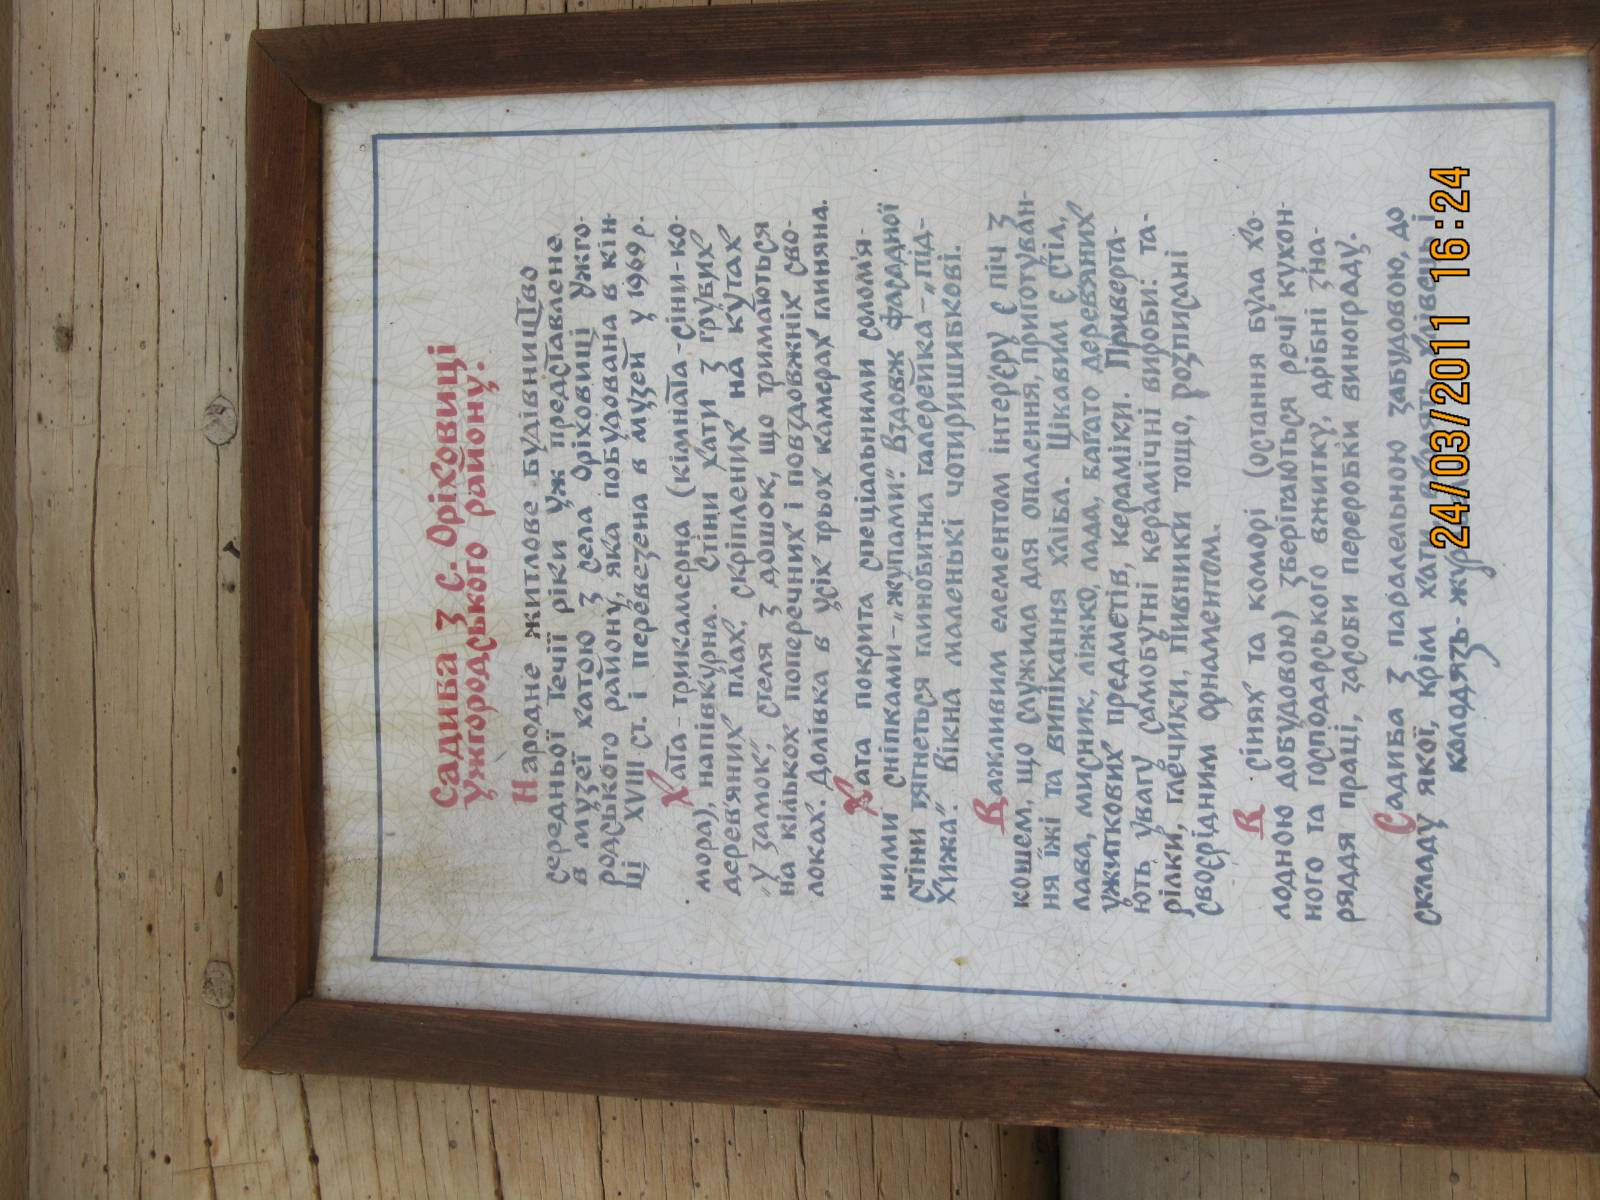 Садиба з с. Оріховиці
Ужгородського району.
Народне житлове будівництво
середньої течії ріки Уж представлене
в музеї хатою з села Оріховиці Ужго-
родського району, яка побудована в кін-
ці XVIII ст. і перевезена в музей у 1969 р.
Хата - трикамерна (кімната-сіни-ко-
мора), напівкурна. Стіни хати з грубих
дерев'яних плах, скріплених на кутах
"у замок", стеля з дошок, що тримаються
на кількох поперечних і повздовжніх сво-
локах. Долівка в усіх трьох камерах глиняна.
Хата покрита спеціальними солом'я-
ними сніпками – „жупами". Вздовж фасадної
стіни тягнеться глинобитна галерейка – „під-
хижа". Вікна маленькі чотиришибкові.
Важливим елементом інтер'єру є піч з
кошем, що служила для опалення, приготуван-
ня їжі та випікання хліба. Цікавим є стіл,
лава, мисник, ліжко, лада, багато дерев'яних
ужиткових предметів, кераміки. Приверта-
ють увагу самобутні керамічні вироби: та-
рілки, глечики, пивники тощо, розписані
своєрідним орнаментом.
В сінях та коморі (остання була хо-
лодною добудовою) зберігаються речі кухон-
ного та господарського вжитку, дрібні зна-
ряддя праці, засоби переробки винограду.
Садиба з паралельною забудовою, до
складу якої, крім хати, входять хлівець і
колодязь-
24/03/2011 16:24